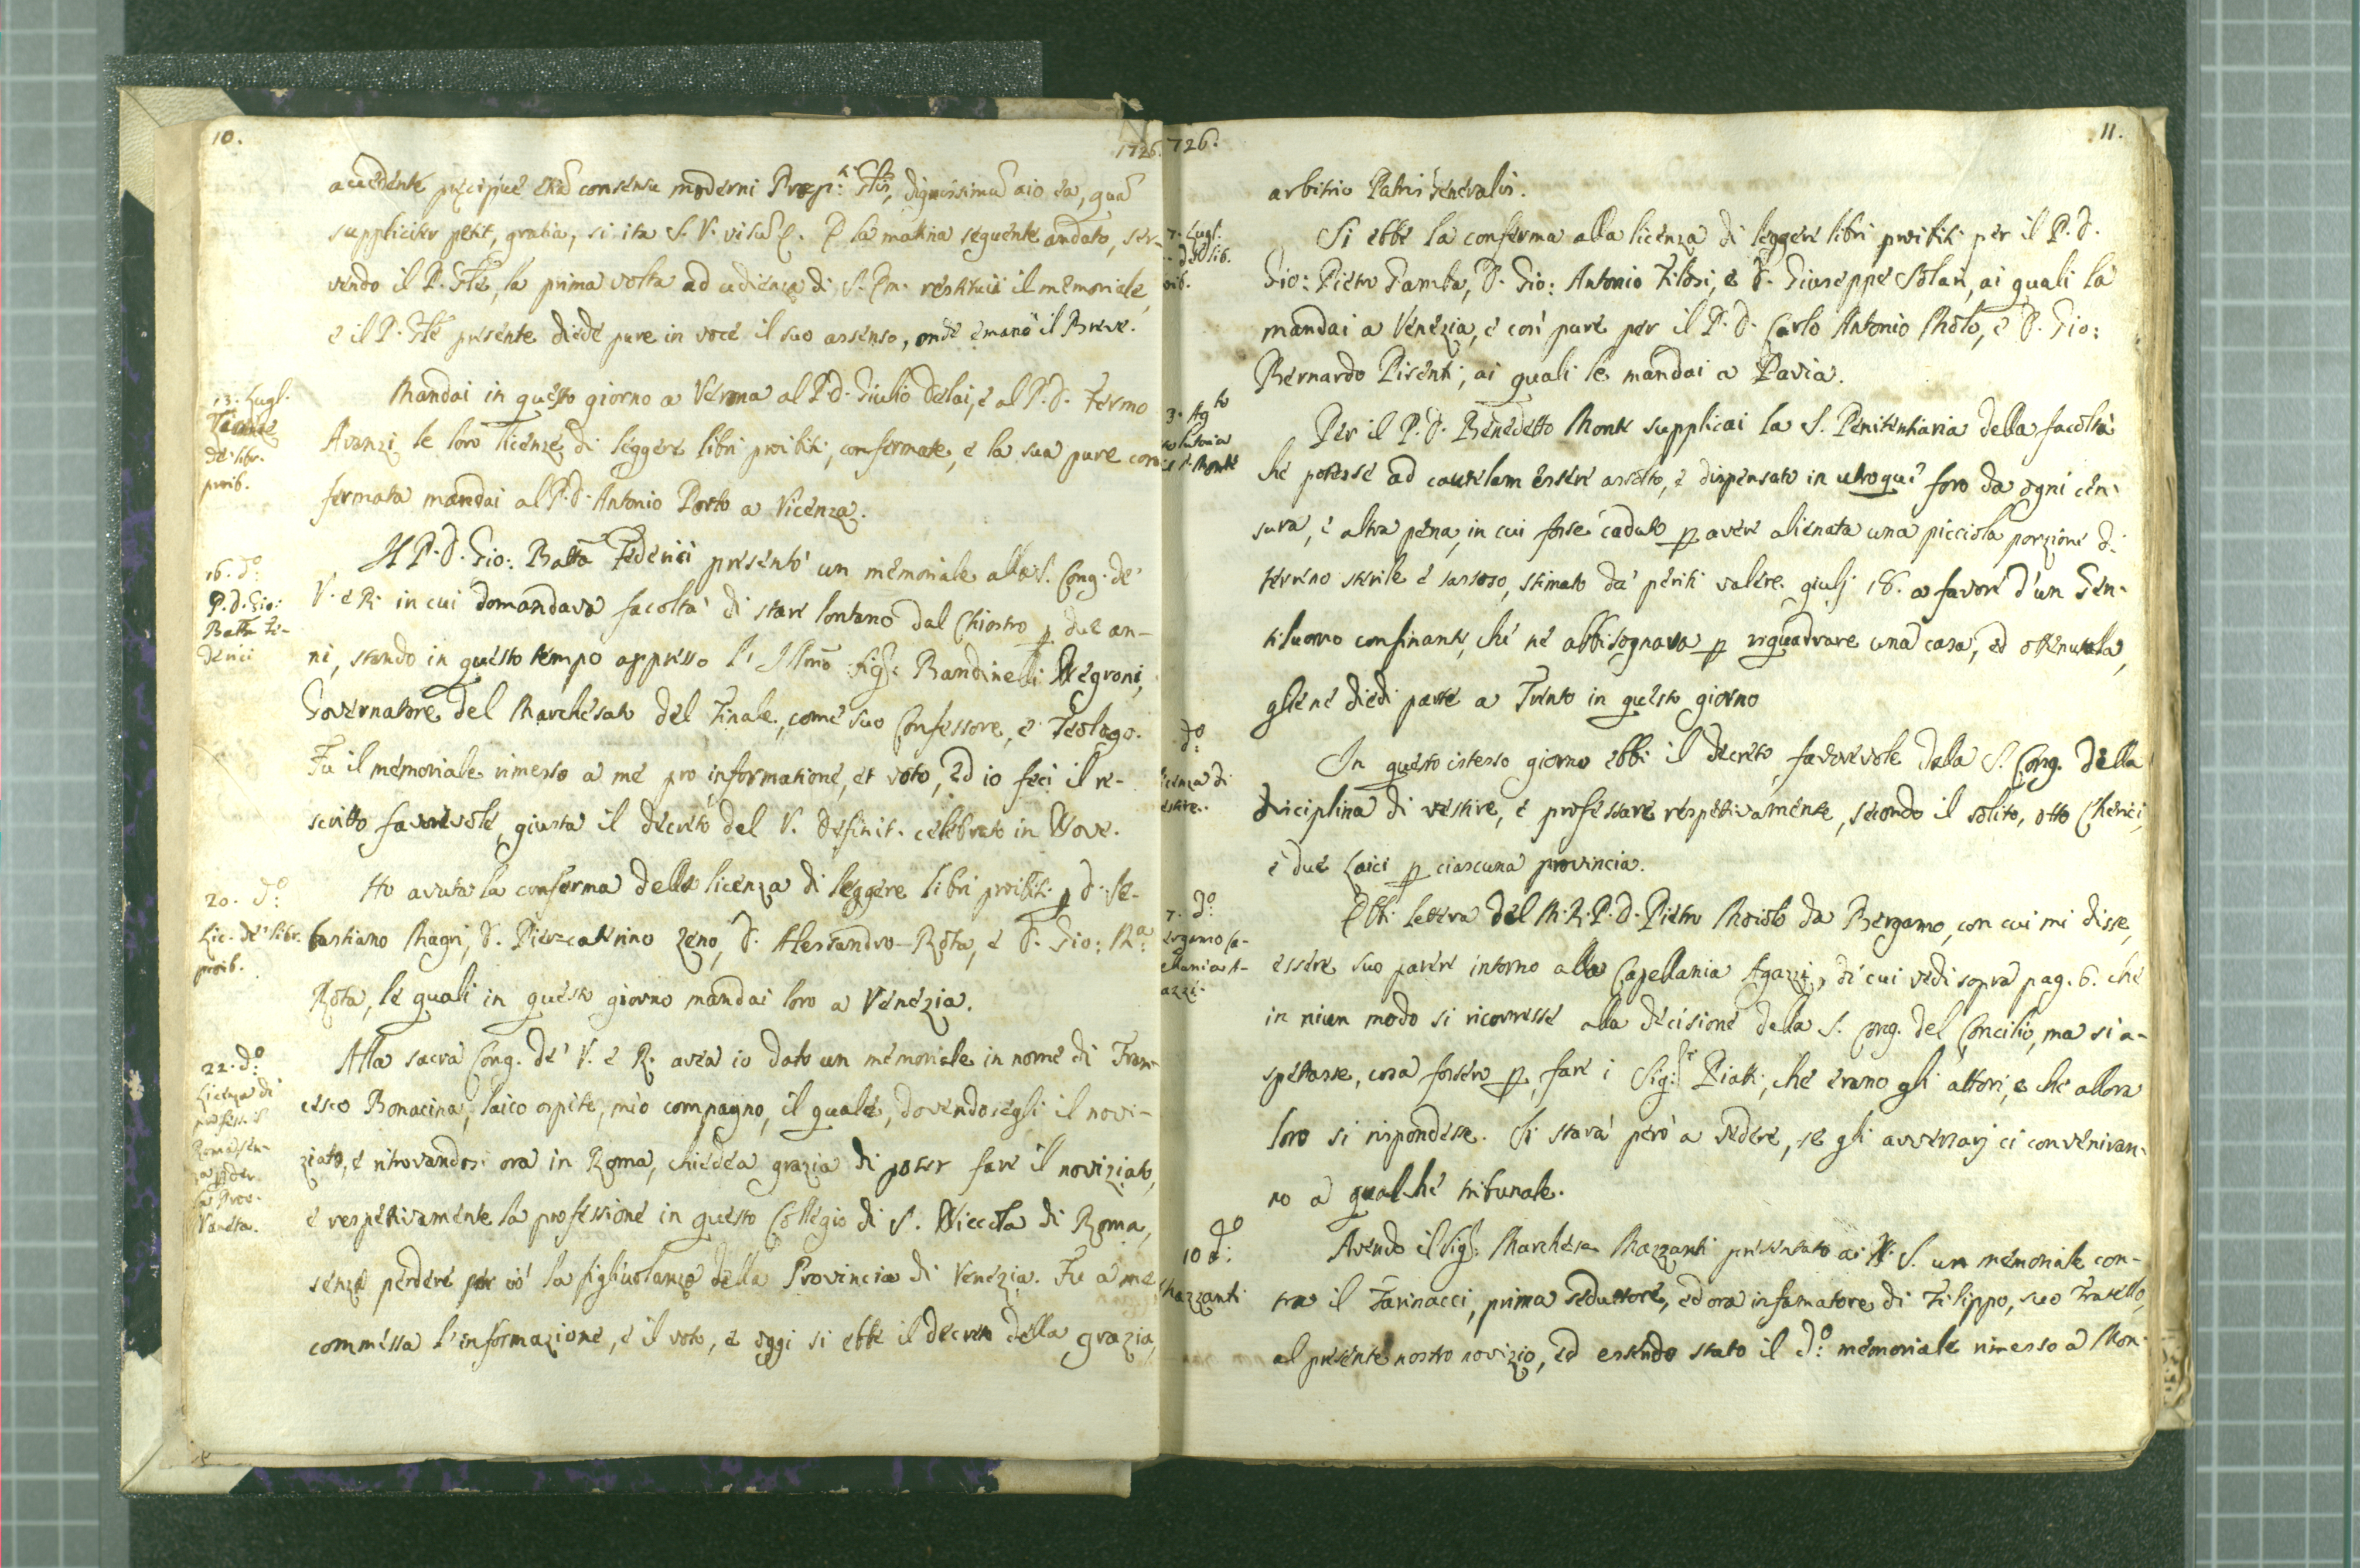 10.
1726.
accedente præcipue etiã consensu moderni Præp.ti Glis, dignissimũ aio ea, quã
suppliciter petit, gratia, si ita S. V. visũ &. E la mattina seguente andato, ser-
vendo il P. Gle, la prima volta ad udienza di S. Em. restituii il memoriale,
e il P. Gle presente diede pure in voce il suo assenso, onde emanò il Breve.
13. Lugl.
Licenze
de' libr.
proib.
Mandai in questo giorno a Verona al P. D. Giulio Delai, e al P. D. Fermo
Avanzi le loro licenze di leggere libri proibiti, confermate, e la sua pure con
fermata mandai al P. D. Antonio Porto a Vicenza.
16. do:
P. D. Gio:
Batta Fe-
derici
Il P. D. Gio: Batta Federici presentò un memoriale alla S. Cong. de'
V. e R. in cui domandava facoltà di stare lontano dal Chiostro p due an-
ni, stando in questo tempo appresso l' Illmo Sig: Bandinelli Negroni,
Governatore del Marchesato del Finale, come suo Confessore, e Teologo.
Fu il memoriale rimesso a me pro informatione, et voto, ed io feci il re-
scritto favorevole, giusta il decreto del V. Definit. celebrato in Nove.
20. do:
Lic. de' libr.
proib.
Ho avuta la conferma della licenza di leggere libri proibiti p D. Se-
bastiano Magri, D. Piercaterino Zeno, D. Alessandro Rota, e D. Gio: Ma:
Rota, le quali in questo giorno mandai loro a Venezia.
22. do:
Licenza di
profess. i
Roma sen-
za pder
la Prov.
Vaneta.
Alla sacra Cong. de' V. e R. avea io dato un memoriale in nome di Fran-
cesco Bonacina, laico ospite, mio compagno, il quale, dovendosegli il novi-
ziato, e ritrovandosi ora in Roma, chiedea grazia di poter fare il noviziato,
e respettivamente la professione in questo Collegio di S. Niccola di Roma,
senza perdere per ciò la figliuolanza della Provincia di Venezia. Fu a me
commessa l'informazione, e il voto, e oggi si ebbe il decreto della grazia,
726.
11.
arbitrio Patris Generalis.
7. Lugl.
de lib.
oib.
Si ebbe la conferma alla licenza di leggere libri proibiti per il P. D.
Gio: Pietro Gamba, D. Gio: Antonio Filosi, e D. Giuseppe Solari, ai quali la
mandai a Venezia, e così pure per il P. D. Carlo Antonio Molo, e D. Gio:
Bernardo Pisenti, ai quali le mandai a Pavia.
3. Agto
solutoria
il P. Monte
Per il P. D. Benedetto Monte supplicai la S. Penitentiaria della facoltà
che potesse ad cautelam essere assolto, e dispensato in utroque foro da ogni cen-
sura, e altra pena, in cui forse caduto p avere alienata una picciola porzione di
terreno sterile e sassoso, stimato da' periti valere giulj 18. a favore d'un Gen-
tiluomo confinante, che ne abbisognava p riquadrare una casa, ed ottenutala,
gliene diedi parte a Trento in questo giorno
do:
icenza di
estire.
In questo istesso giorno ebbi il decreto favorevole dalla S. Cong. della
disciplina di vestire, e professare respettivamente, secondo il solito, otto Cherici,
e due Laici p ciascuna provincia.
7. do:
ergamo Ca-
ellania A-
azzi.
Ebbi lettera del M. R. P. D. Pietro Moiolo da Bergamo, con cui mi disse,
essere suo parere intorno alla Capellania Agazzi, di cui vedi sopra pag. 6. che
in niun modo si ricorresse alla decisione della S. Cong. del Concilio, ma si a-
spettasse, cosa fossero p fare i Sig:ri Piatti, che erano gli attori, e che allora
loro si rispondesse. Si starà però a vedere, se gli avversarj ci conveniran-
no a qualche tribunale.
10 do:
Mazzanti
Avendo il Sig: Marchese Mazzanti presentato a N. S. un memoriale con-
tra il Farinacci, prima seduttore, ed ora infamatore di Filippo, suo Fratello,
al presente nostro novizio, ed essendo stato il do: memoriale rimesso a Mon-